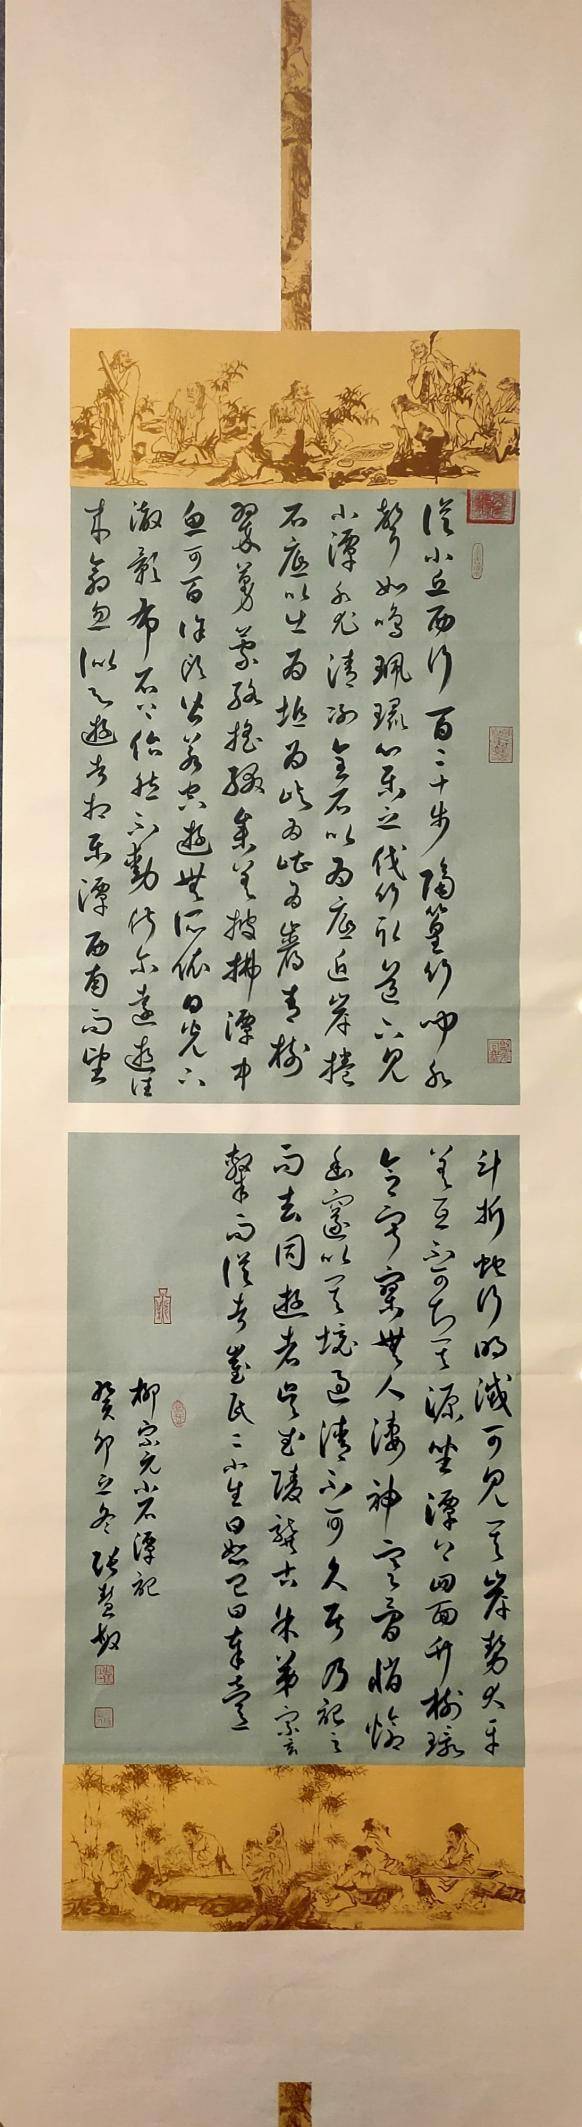 從小丘西行百二十步隔篁竹聞水
聲如鳴珮環心樂之伐竹取道下見
小潭水尤清冽全石以為底近岸捲
石底以出為坻為嶼為嵁為巖青樹
翠蔓蒙絡搖綴參差披拂潭中
魚可百許頭皆若空遊無所依日光下
澈影布石上佁然不動俶尔遠逝往
來翕忽似与遊者相樂潭西南而望
斗折蛇行明滅可見其岸勢犬牙
差互不可知其源坐潭上四面竹樹環
合寂寥無人淒神寒骨悄愴
幽邃以其境過清不可久居乃記之
而去同遊者吳武陵龔古余弟宗玄
隸而從者崔氏二小生曰恕己曰奉壹
柳宗元小石潭記
癸卯立冬張慧敏